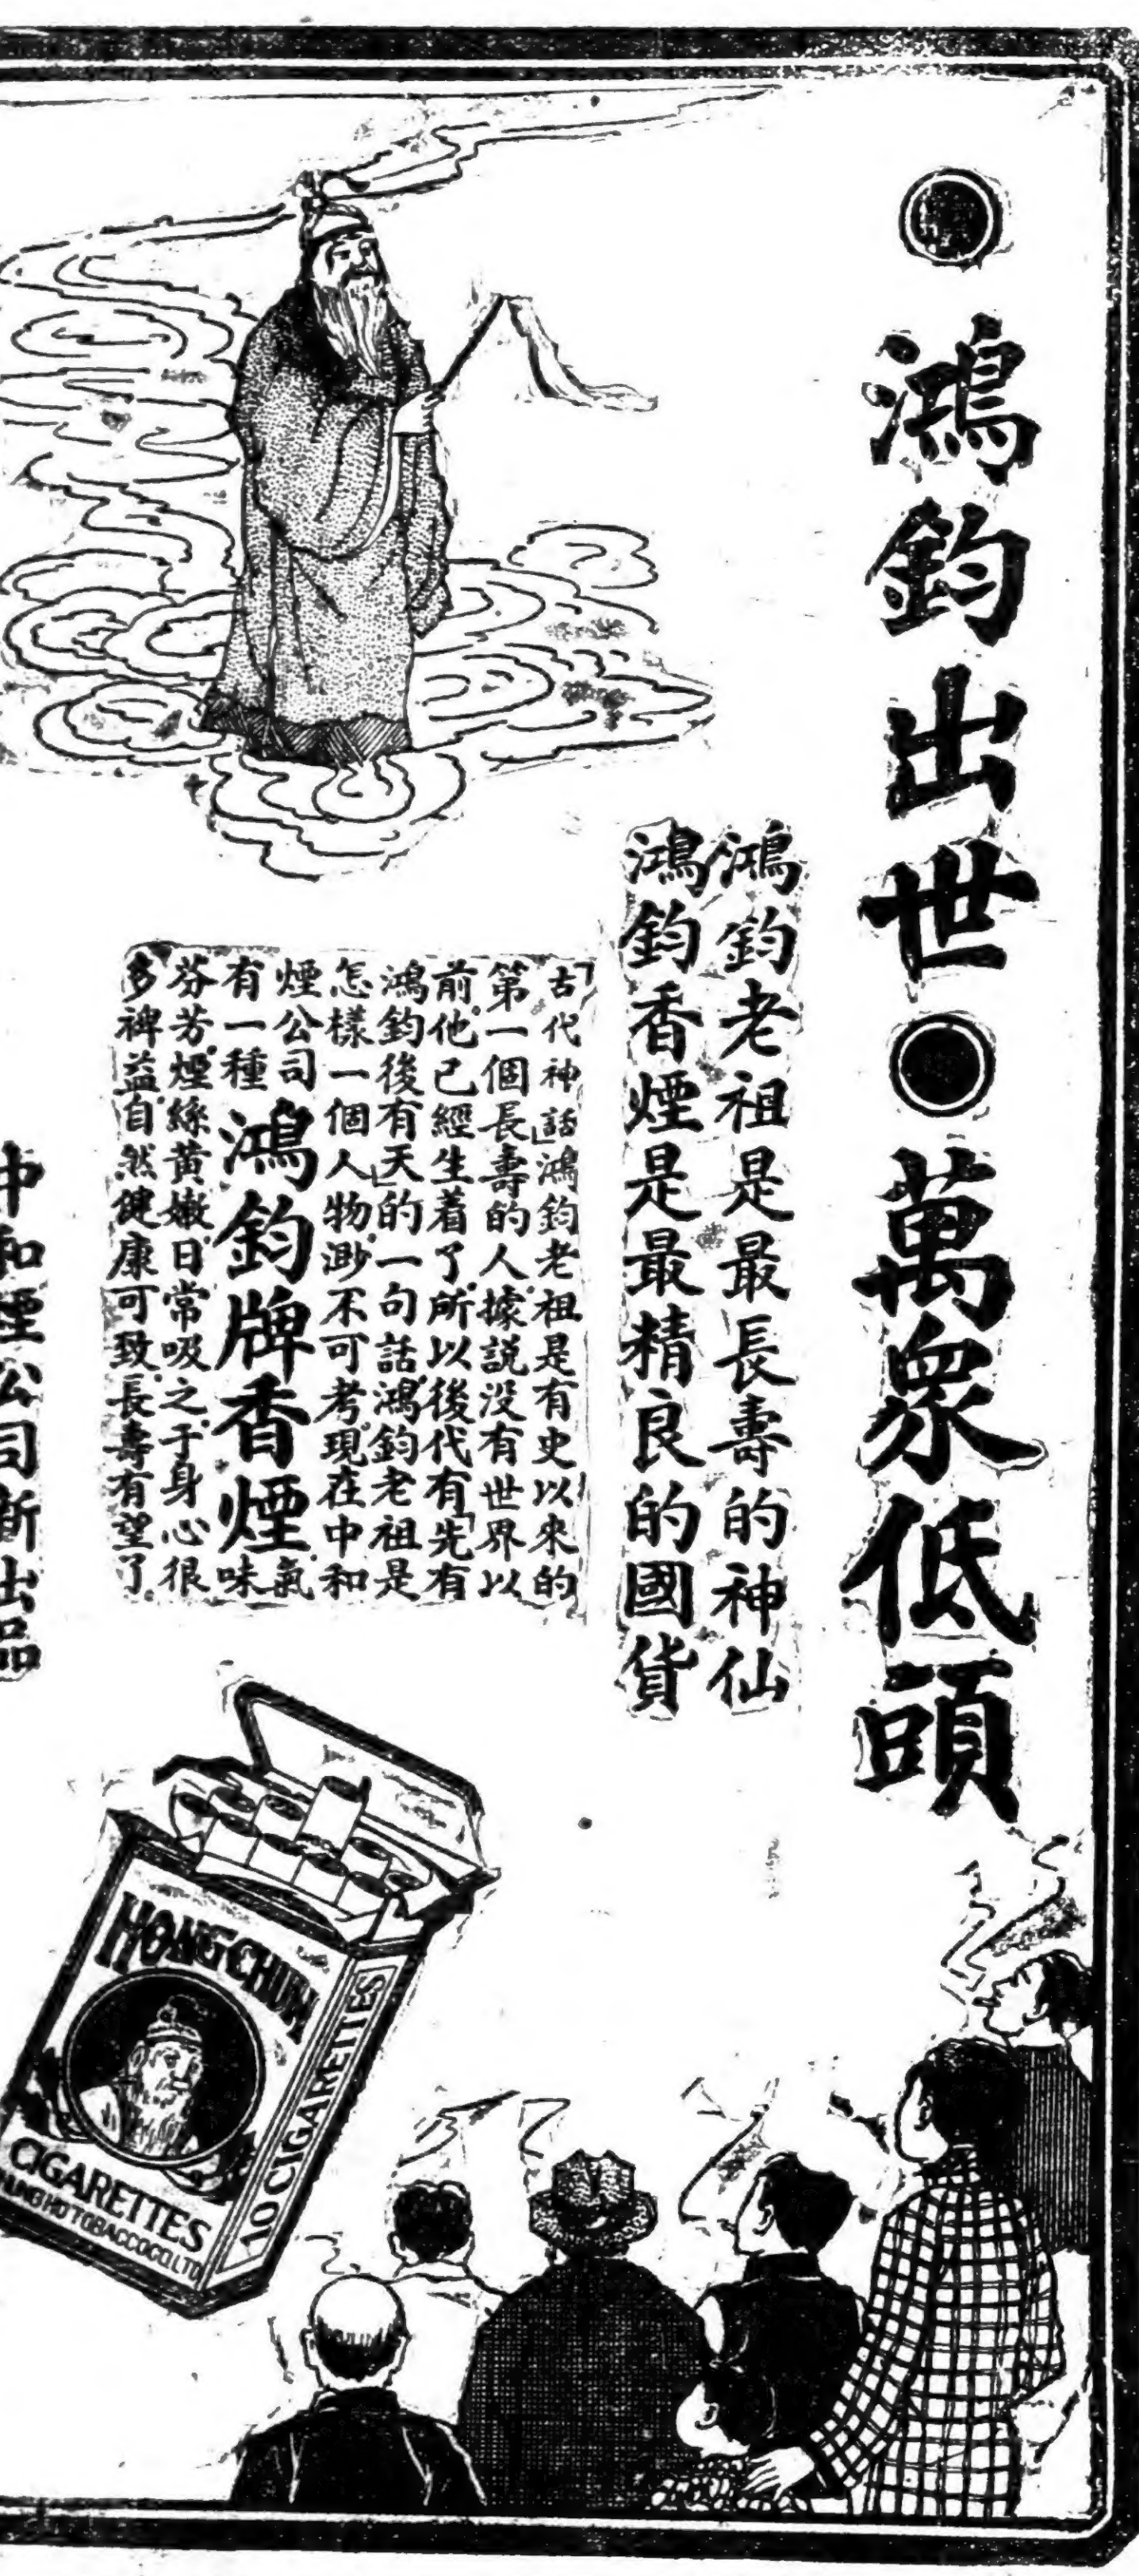 ●鴻鈞出世●萬衆低頭
鴻鈞老祖是最長壽的神仙
鴻鈞香煙是最精良的國貨
「古代神話」鴻鈞老祖是有史以來的
第一個長壽的人據説没有世界以
前他已經生着了所以後代有「先有
鴻鈞後有天」的一句話鴻鈞老祖是
怎樣一個人物渺不可考現在中和
煙公司
有一種鴻鈞牌香煙氣味
芬芳煙絲黄嫩日常吸之于身心很
多裨益自然健康可致長壽有望了
中和煙公司新出品
HONGCHUN
CIGARETTES
10 CIGARETTES
TOBACCO CO. LTD